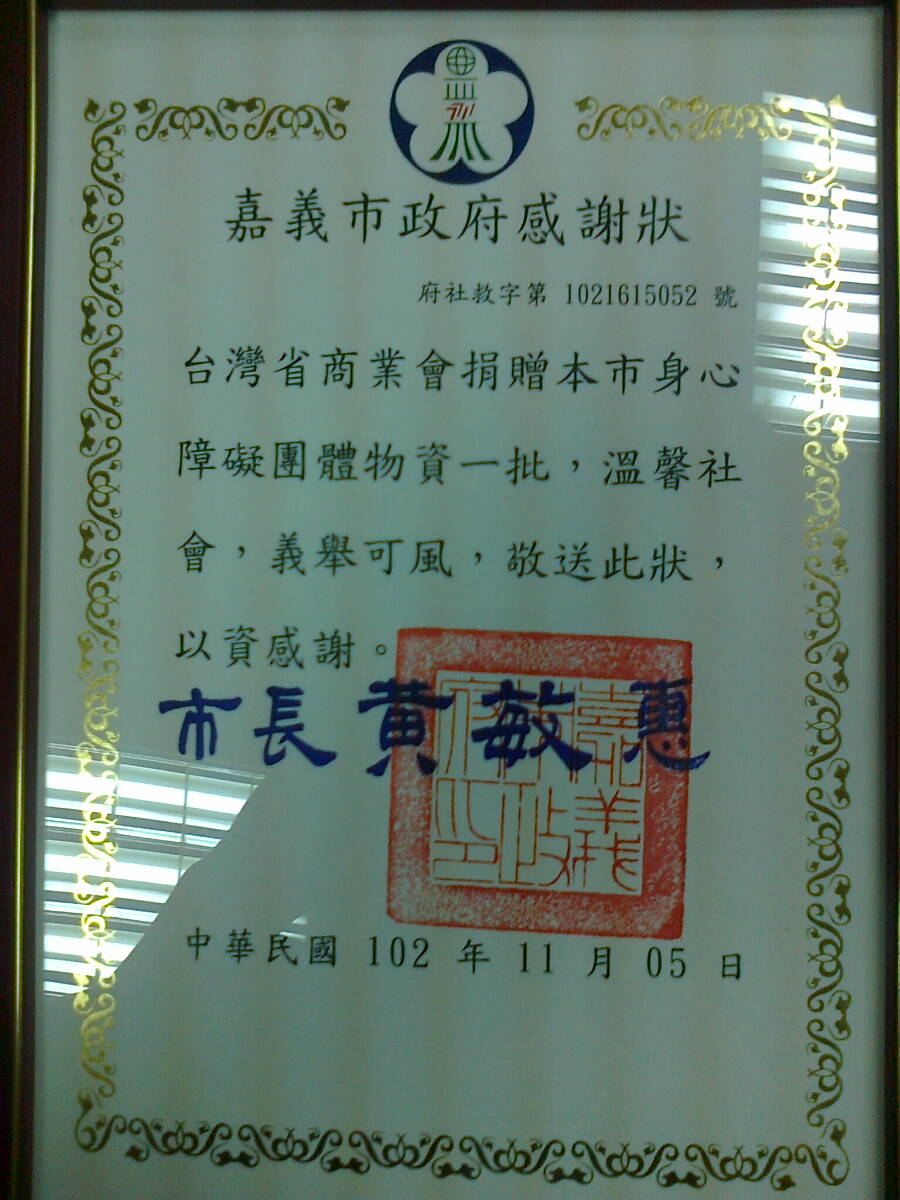 嘉義市政府感謝狀
府社救字第 1021615052 號
台灣省商業會捐贈本市身心
障礙團體物資一批，溫馨社
會，義舉可風，敬送此狀，
以資感謝。
市長黃敏惠
嘉義市政府印
中華民國 102 年 11 月 05 日